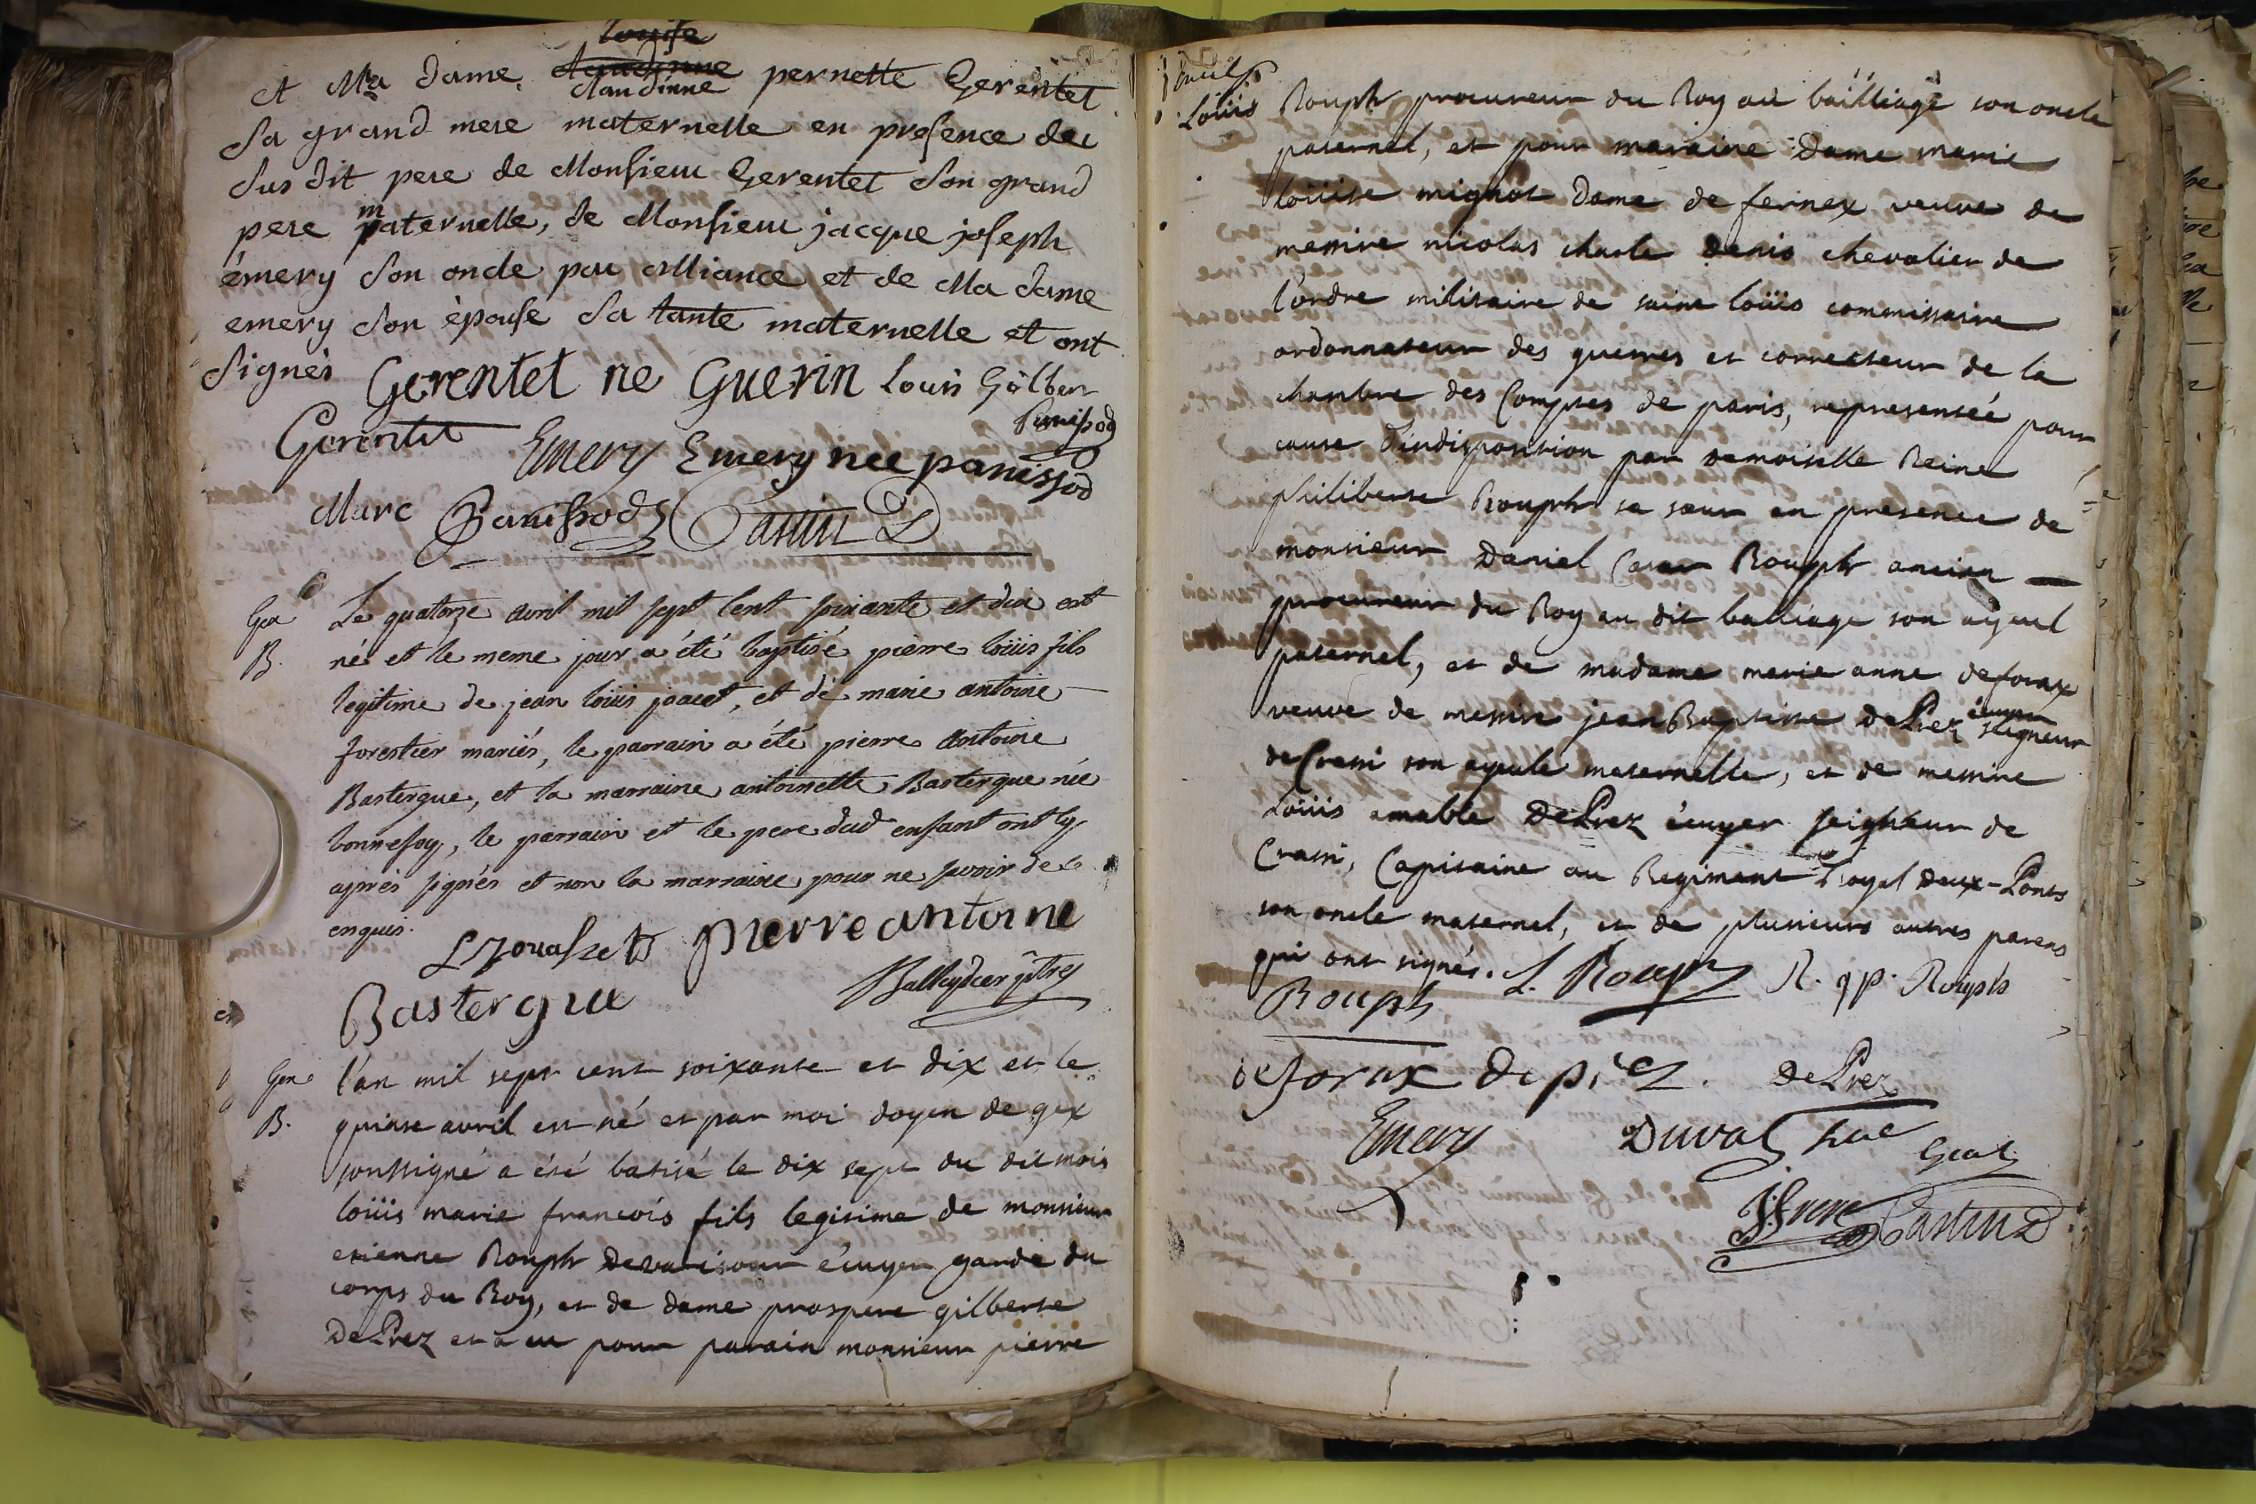 louise
et Ma dame claudinne pernette Gerentet
claudinne
sa grand mere maternelle en presence de
sus dit pere de Monsieur Gerentet son grand
pere maternelle, de Monsieur jacque joseph
émery son oncle par alliance et de Ma dame
emery son èpouse sa tante maternelle et ont
signès Gerentet ne Guerin Louis Gilbert
panissod
Gerentet Emery Emery nee panissod
Marc Panissod Castin D
Gex Le quatorze avril mil sept cent soixante et dix est
B. né et le meme jour a été baptisé pierre loüis fils
legitime de jean loüis joacet, et de marie antoine
forestier mariés, le parrain a été pierre Antoine
Bastergue, et la marraine antoinette Bastergue née
bonnefoy, le parrain et le pere dud enfant ont cy
après signés et non la marraine pour ne savoir de ce
enquis.
pierre antoine
Bastergue
Gex l'an mil sept cent soixante et dix et le
B. quinse avril est né et par moi doyen de gex
soussigné a été batisé le dix sept du dit mois
loüis marie francois fils legitime de monsieur
etienne Rouph devaricour écuyer garde du
corps du Roy, et de dame prospere gilberte
DePrez et a eu pour parain monsieur pierre
Loüis Rouph procureur du Roy au bailliage son oncle
paternel, et pour maraine Dame marie
loüise mignot Dame de fernex veuve de
messire nicolas charle denis chevalier de
l'ordre militaire de saint loüis commissaire
ordonnateur des guerres et correcteur de la
chambre des Comptes de paris, representée pour
cause d'indisposition par demoiselle Reine
philiberte Rouph sa sœur en presence de
monsieur Daniel Cesar Rouph ancien
procureur du Roy au dit balliage son ayeul
paternel, et de madame marie anne deforax
veuve de messire jean Baptiste dePrez écuyer seigneur
de Crassi son ayeule maternelle, et de messire
Loüis amable DePrez écuyer seigneur de
Crassi, Capitaine au Regiment Royal Deux-Ponts
son oncle maternel, et de plusieurs autres parens
qui ont signés. L. Rouph R. p. Rouph
Rouph
deforax deprez. DePrez
Emery Duval
Castin D